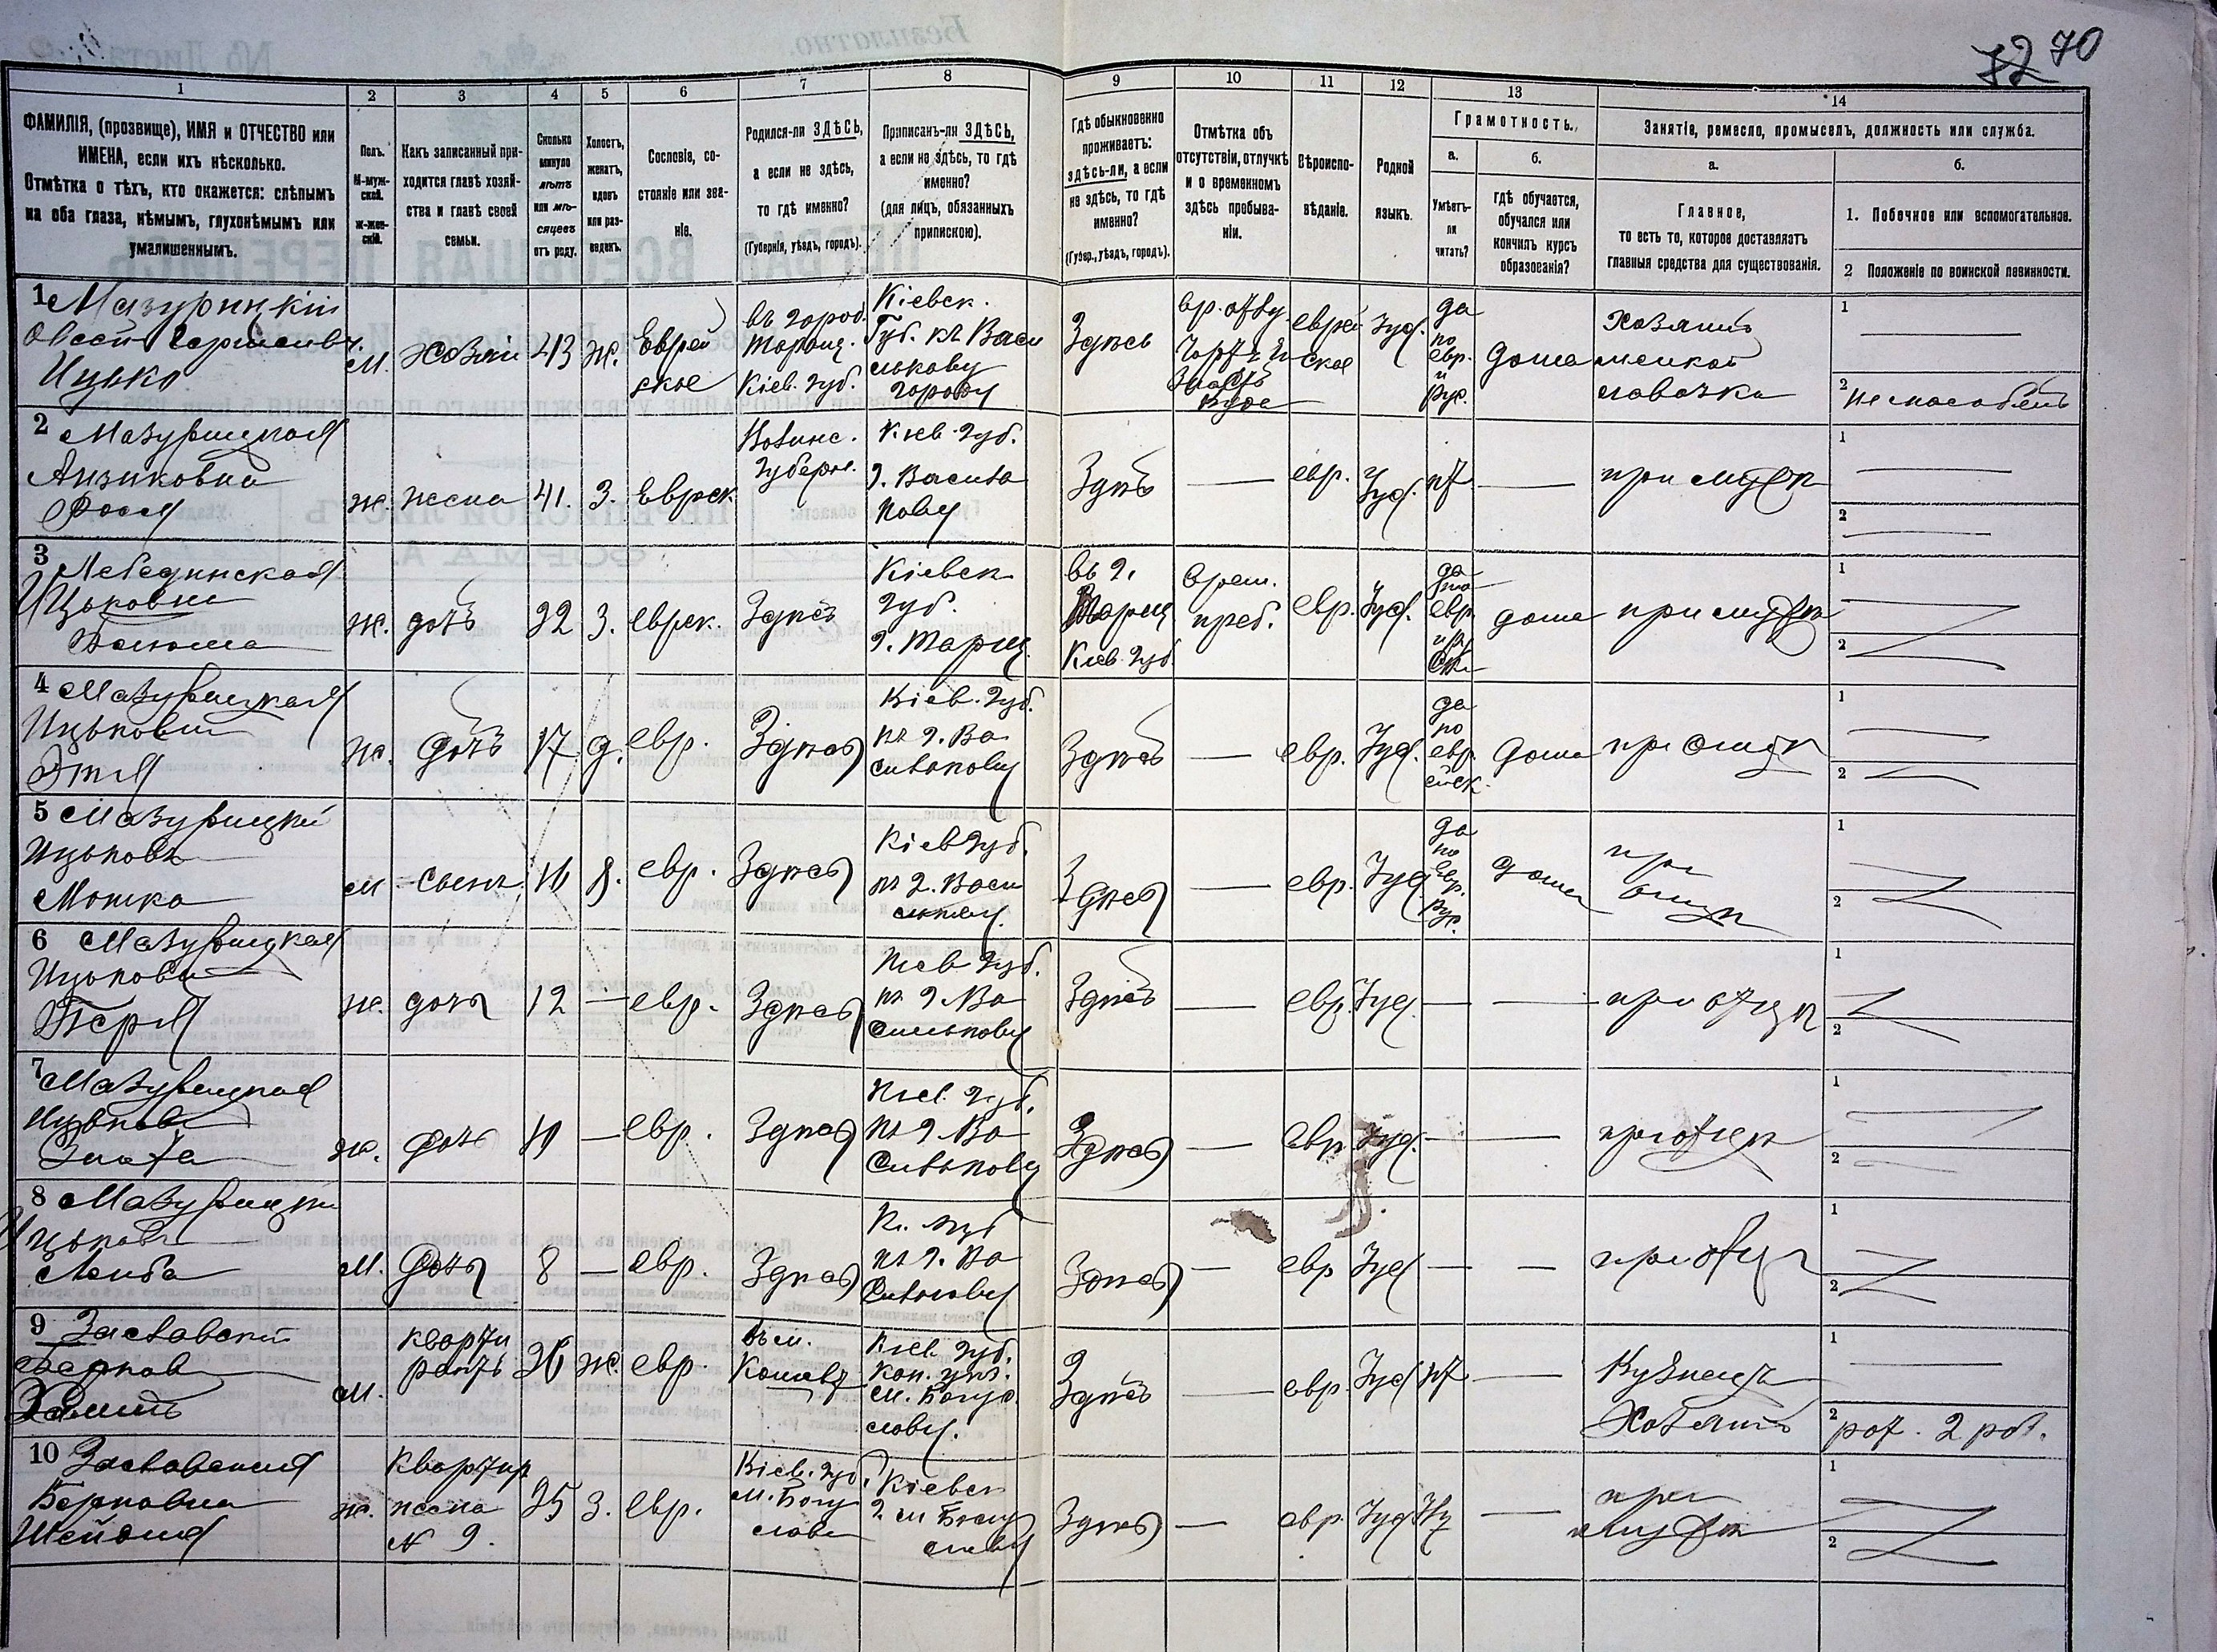 72 70
1 2 3 4 5 6 7 8 9 10 11 12 13 14
ФАМИЛІЯ, (прозвище), ИМЯ и ОТЧЕСТВО или
ИМЕНА, если ихъ нѣсколько.
Отмѣтка о тѣхъ, кто окажется: слѣпымъ
на оба глаза, нѣмымъ, глухонѣмымъ или
умалишеннымъ.
Полъ.
М-муж-
ской.
ж-жен-
скій.
Какъ записанный при-
ходится главѣ хозяй-
ства и главѣ своей
семьи.
Сколько
минуло
лѣтъ
или мѣ-
сяцевъ
отъ роду.
Холостъ,
женатъ,
вдовъ
или раз-
веденъ.
Сословіе, со-
стояніе или зва-
ніе.
Родился-ли ЗДѢСЬ,
а если не здѣсь,
то гдѣ именно?
(Губернія, уѣздъ, городъ).
Приписанъ-ли ЗДѢСЬ,
а если не здѣсь, то гдѣ
именно?
(для лицъ, обязанныхъ
припискою).
Гдѣ обыкновенно
проживаетъ:
здѣсь-ли, а если
не здѣсь, то гдѣ
именно?
(Губер., уѣздъ, городъ).
Отмѣтка объ
отсутствіи, отлучкѣ
и о временномъ
здѣсь пребыва-
ніи.
Вѣроиспо-
вѣданіе.
Родной
языкъ.
Грамотность.
а.
Умѣетъ-
ли
читать?
б.
гдѣ обучается,
обучался или
кончилъ курсъ
образованія?
Занятіе, ремесло, промыселъ, должность или служба.
а.
Главное,
то есть то, которое доставляетъ
главныя средства для существованія.
б.
1. Побочное или вспомогательное.
2 Положеніе по воинской повинности.
1 Мазурицкій
Овсей
Ицько
М. Хозяин 43 Ж.
Еврей
ское
въ город.
Таращ.
Кіев. губ.
Кіевск.
Губ. къ Васи
лькову
городу
Здѣсь
вр.
еврей
ское
Жуд.
да
по
евр.
и
Рус.
дома
Хозяинъ
1
2
2 Мазурицкая
Айзиковна
ж. жена 41. З. Еврск.
губерн.
Кіев. губ.
г. Василь
кову
Здѣсь — евр. Жуд. нт —
при мужѣ
1
2
3 Лебединская
Ицьковна
ж. дочь 22 З. еврск. Здѣсь
Кіевск
губ.
г. Таращ.
въ г.
Таращ
Кіев. губ.
Врем.
преб.
евр. Жуд.
да
по
евр.
дома при мужѣ
1
2
4 Мазурицкая
Ицькова
Этя
ж. дочь 17 д. евр. Здѣсь
Кіев. губ.
къ г. Ва
силькову
Здѣсь — евр. Жуд.
да
по
евр.
ейск.
дома при отцѣ
1
2
5 Мазурицкій
Ицьковъ
Мошка
м. сынъ евр. Здѣсь
Кіев губ.
къ г. Васи
Здѣсь — евр. Жуд
да
по
евр.
Рус.
дома
при
отцѣ
1
2
6 Мазурицкая
Ицькова
Перля
ж. дочь 12 — евр. Здѣсь
Кіев губ.
къ г. Ва
силькову
Здѣсь — евр. Жуд. — — при отцѣ
1
2
7 Мазурицкая
Ицькова
Злата
ж. дочь — евр. Здѣсь
Кіев. губ.
къ г. Ва
силькову
Здѣсь — евр. Жуд. — — при отцѣ
1
2
8 Мазурицкій
Ицьковъ
Лейба
М. дочь 8 — евр. Здѣсь
Кі. губ
къ г. Ва
силькову
Здѣсь — евр Жуд — — при отцѣ
1
2
9 Заславскій
Берков
м.
кварти
рантъ
26 ж. евр.
въ м.
Кіев. губ.
Кан. уѣз.
м. Богу
славу.
Здѣсь — евр. Жуд нт —
Кузнецъ
Хозяинъ
1
2 рат. 2 раз.
10 Заславская
Берковна
Шейдля
ж.
квартир
жена
N 9.
25 З. евр.
Кіев. губ.
м. Богу
слав
Кіевск
г м Богу
славу
Здѣсь — евр. Жуд —
при
мужѣ
1
2